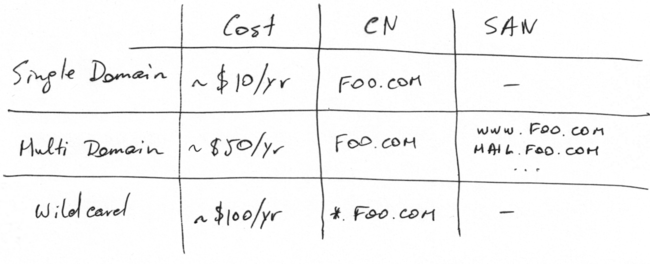 Cost CN SAN
Single Domain ~ $10/yr FOO.COM –
Multi Domain ~ $50/yr FOO.COM WWW.FOO.COM
MAIL.FOO.COM
...
Wildcard ~ $100/yr *.FOO.COM –